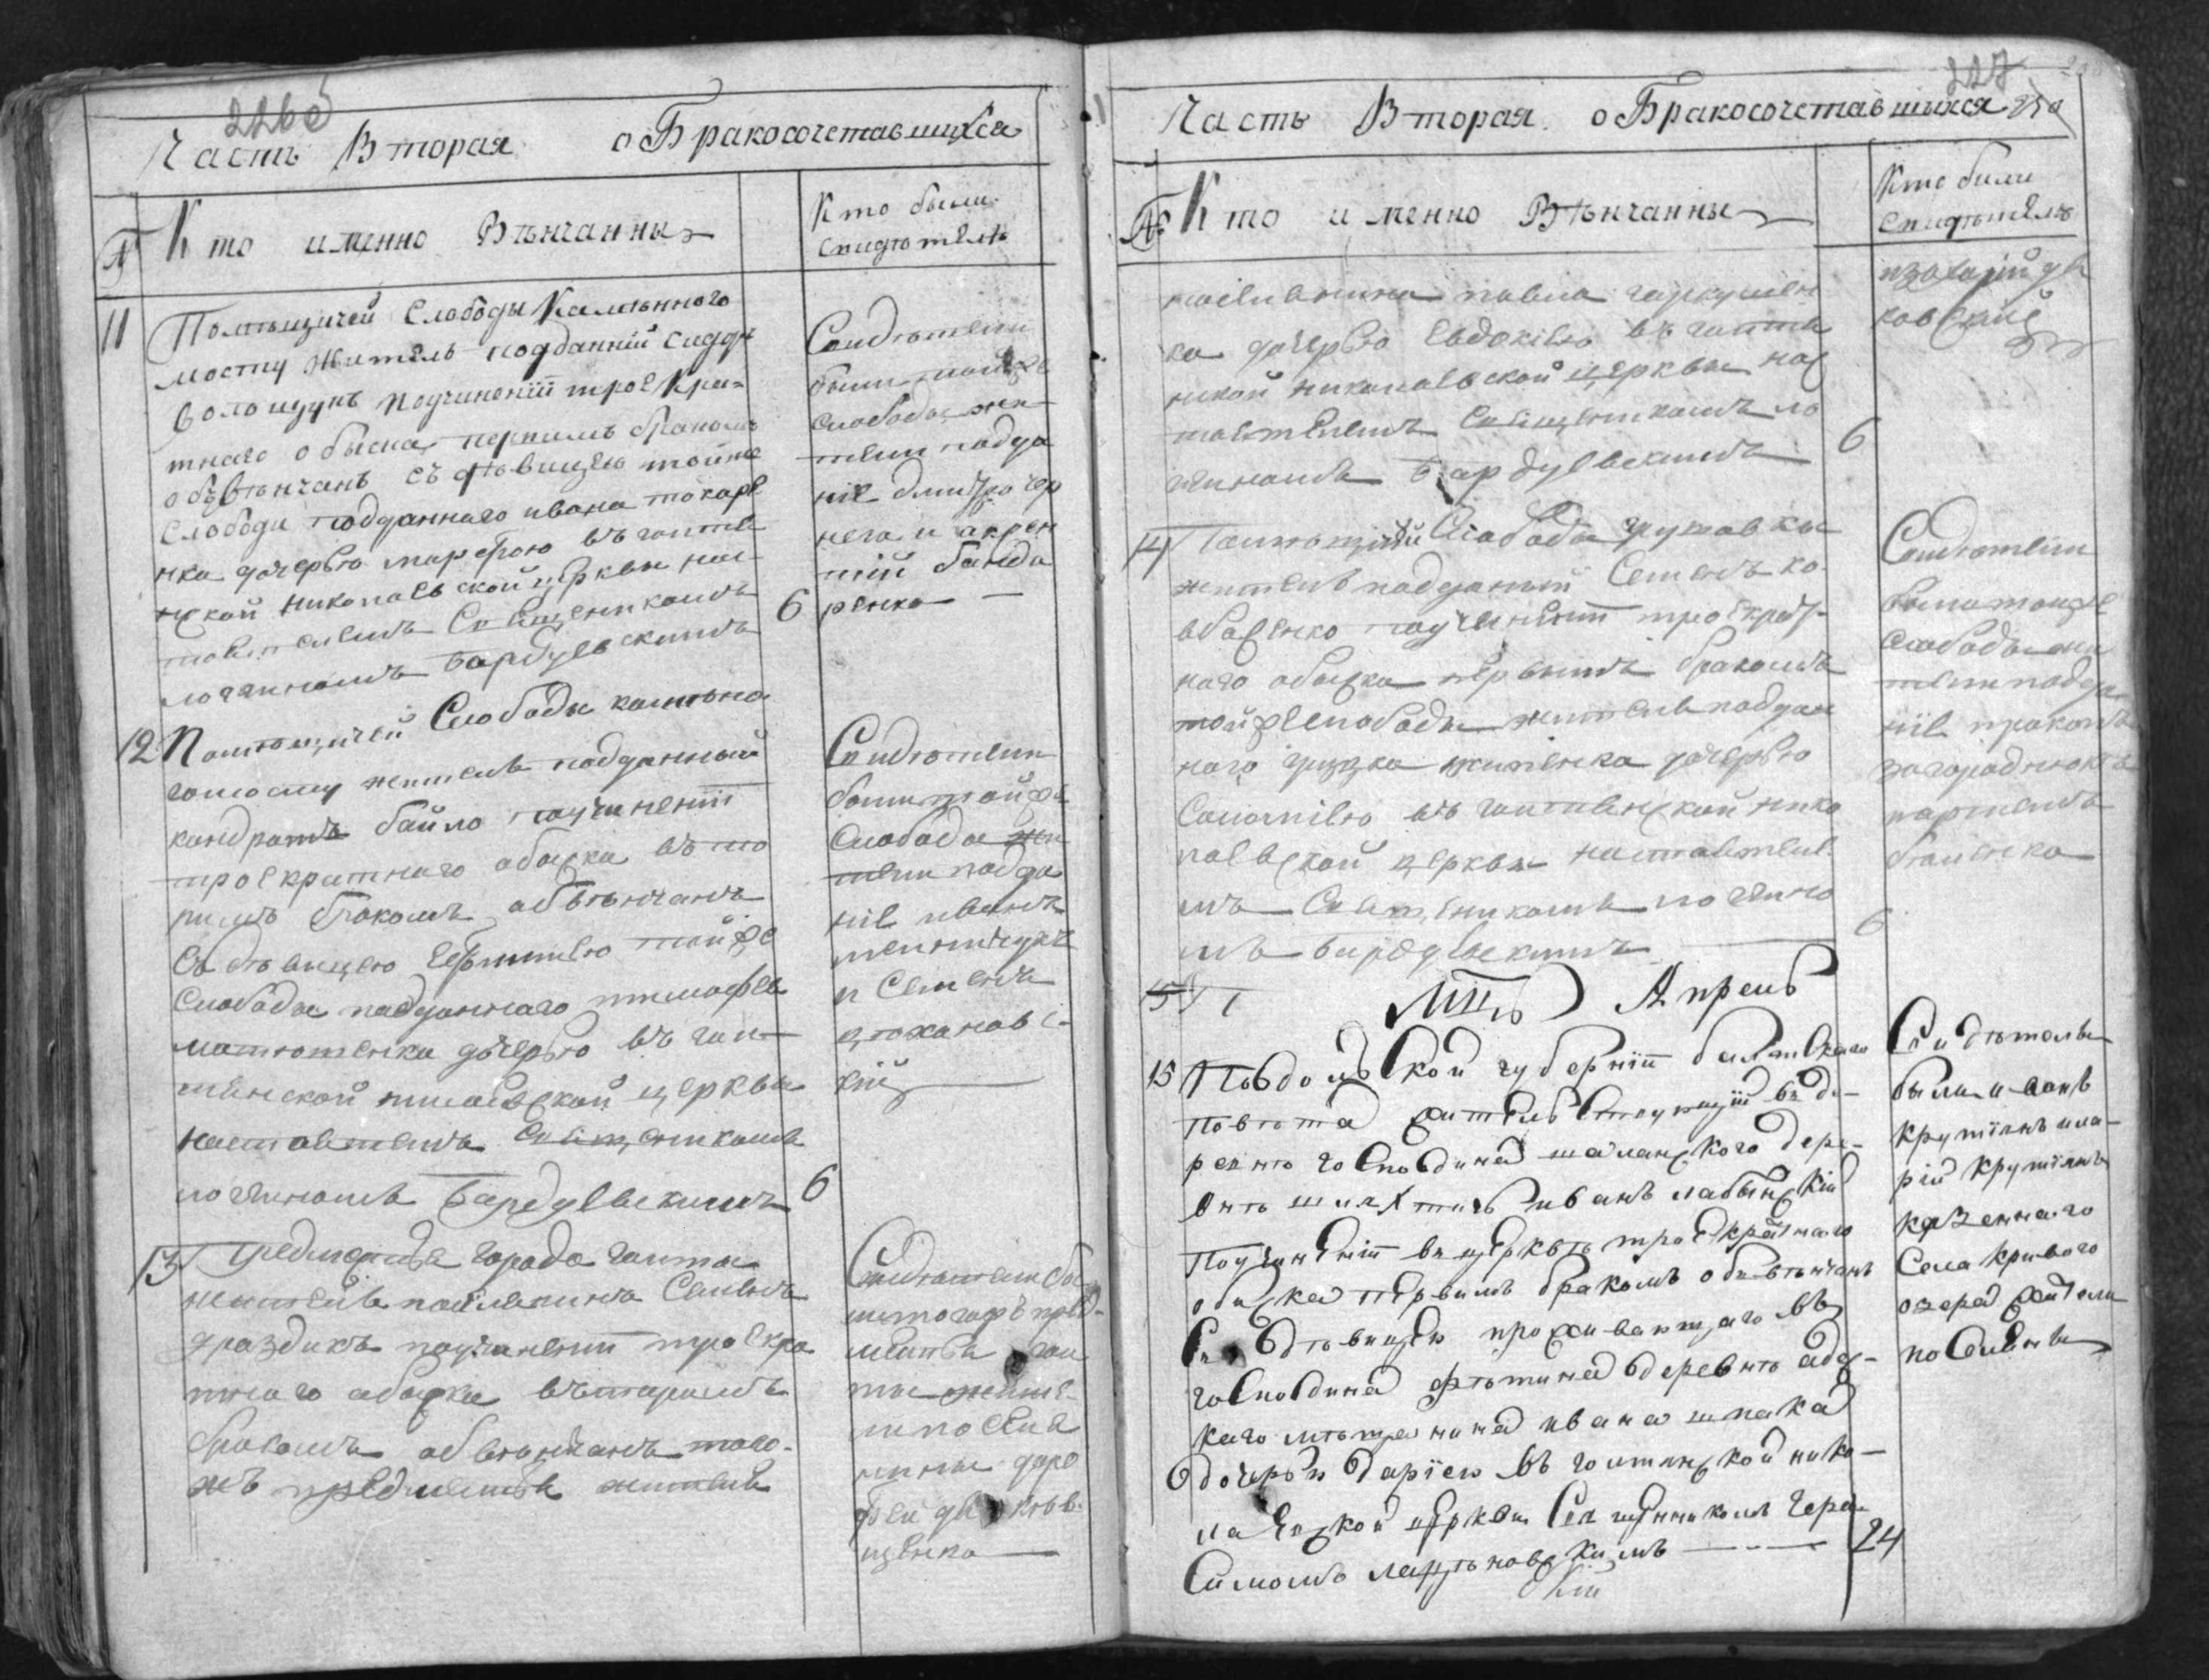 226об
Часть Вторая о Бракосочетавшихся
№ Кто именно Вѣнчанны
Кто были свидѣтели
11 Помѣщичей Слободы Каменного
мосту житель подданній
по учиненіи троекра-
тнаго обыска первимъ бракомъ
обвѣнчанъ съ дѣвицею тойже
Слободи подданнаго ивана токаре
нка дочерью марфою въ голте
нской николаевской церкви нас-
тоятелемъ Священикомъ
логиномъ Бардуевскимъ 6
Свидѣтели
были тойже
слободы жи
тели подда
ніе дмитро чер
нега и
бонда
ренко
12 Помѣщичей Слободы каменно
гомосту житель подданный
кондратъ байло по учиненіи
троекратнаго обыска въто
римъ бракомъ обвѣнчанъ
съ дѣвицею тойже
Слободы подданнаго тимофея
матюшенка дочерью въ гол-
тянской николаевской церкви
настоятелемъ Священикомъ
логиномъ Бардуевскимъ 6
Свидѣтели
были тойже
Слободы жи
тели подда
ніе иванъ
и Семенъ
кій
13 Предместья города голты
житель поселянинъ Семенъ
дроздикъ по учиненіи троекра
тнаго обыска вътаримъ
бракомъ обвѣнчанъ того-
жъ предместья житель
Свидѣтели бы
ли тогожъ пред-
местья гол
ты жите-
ли поселя
нины
227
Часть Вторая о Бракосочетавшихся
№ Кто именно Вѣнчанны
Кто были свидѣтелѣ
поселянина павла гаркушен
ка дочерью Евдокіею въ голтя
нской николаевской церкви нас
тоятелемъ Священикомъ ло
гиномъ Бардуевскимъ 6
и захарій дя
ковскій
14 Помѣщичей Слободы
житель подданый Семенъ ко
вбасенко по учиненіи троекрат-
наго обыска первымъ бракомъ
тойже слободы жителя поддан
наго грицка дочерью
Соломіею въ голтянской нико
лаевской церкви настоятеле
мъ Священикомъ логино
мъ бардуевскимъ 6
Свидѣтели
были тойже
слободы жи
тели подда
ніе прокопъ
загороднюкъ
15 Мць Апрель
15 Подольской губерніи балтского
повѣта житель въ де-
ревнѣ господина дере-
внѣ шляхтичъ иванъ лабынскій
по учиненіи въ церквѣ троекратнаго
обыска первимъ бракомъ обвѣнчанъ
Съ дѣвицею проживающаго въ
господина деревнѣ
каго мѣщанина ивана шпака
дочерью даріею въ голтянской нико-
лаевской церкви Священникомъ Гера-
симомъ 24
Свидѣтелы
были иванъ
крутіянъ ила-
рій крутіянъ
казеннаго
Села кривого
озера жители
поселяны